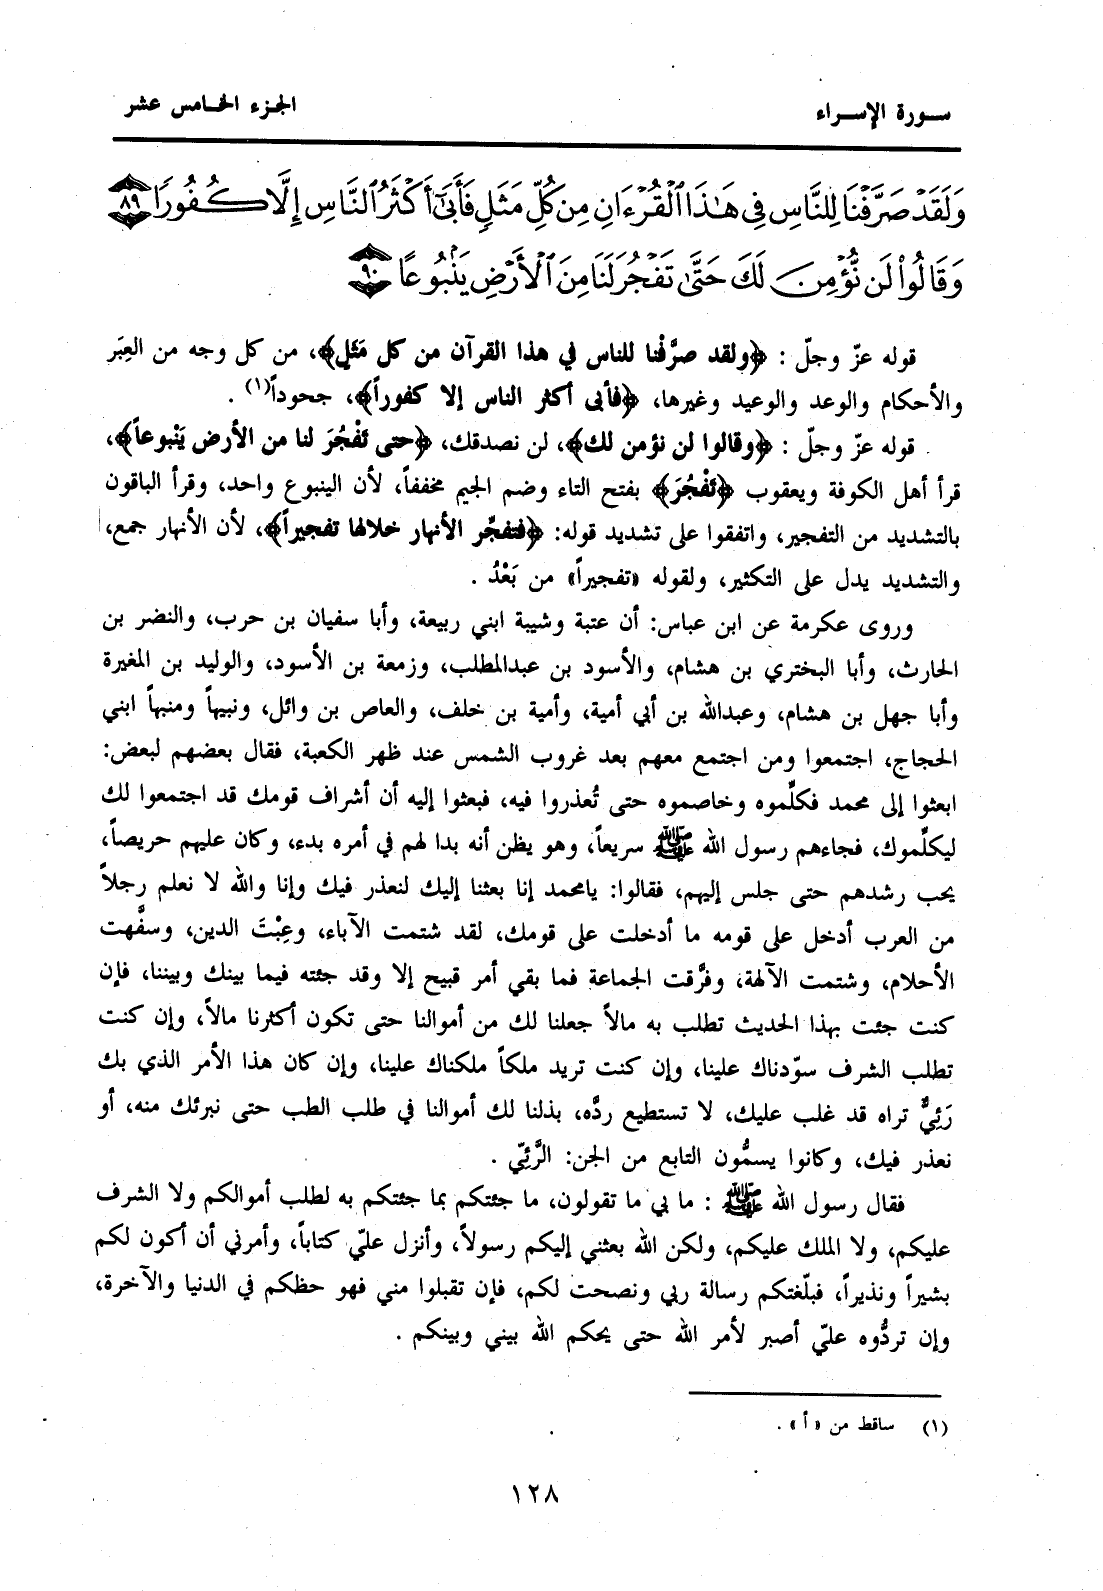 سورة الإسراء
الجزء الخامس عشر
وَلَقَدْ صَرَّفْنَا لِلنَّاسِ فِى هَٰذَا ٱلْقُرْءَانِ مِن كُلِّ مَثَلٍ فَأَبَىٰٓ أَكْثَرُ ٱلنَّاسِ إِلَّا كُفُورًا ٨٩
وَقَالُوا۟ لَن نُّؤْمِنَ لَكَ حَتَّىٰ تَفْجُرَ لَنَا مِنَ ٱلْأَرْضِ يَنۢبُوعًا ٩٠
قوله عزّ وجلّ : ﴿ولقد صرَّفْنا للناس في هذا القرآن من كل مَثَلٍ﴾، من كل وجه من العِبَر
والأحكام والوعد والوعيد وغيرها، ﴿فأبى أكثر الناس إلا كفوراً﴾، جحوداً(١) .
قوله عزّ وجلّ : ﴿وقالوا لن نؤمن لك﴾، لن نصدقك، ﴿حتى تَفْجُرَ لنا من الأرض يَنْبوعاً﴾،
قرأ أهل الكوفة ويعقوب ﴿تَفْجُرَ﴾ بفتح التاء وضم الجيم مخففاً، لأن الينبوع واحد، وقرأ الباقون
بالتشديد من التفجير، واتفقوا على تشديد قوله: ﴿فتفجِّر الأنهار خلالها تفجيراً﴾، لأن الأنهار جمع،
والتشديد يدل على التكثير، ولقوله «تفجيراً» من بَعْدُ .
وروى عكرمة عن ابن عباس: أن عتبة وشيبة ابني ربيعة، وأبا سفيان بن حرب، والنضر بن
الحارث، وأبا البختري بن هشام، والأسود بن عبدالمطلب، وزمعة بن الأسود، والوليد بن المغيرة
وأبا جهل بن هشام، وعبدالله بن أبي أمية، وأمية بن خلف، والعاص بن وائل، ونبيهاً ومنبهاً ابني
الحجاج، اجتمعوا ومن اجتمع معهم بعد غروب الشمس عند ظهر الكعبة، فقال بعضهم لبعض:
ابعثوا إلى محمد فكلِّموه وخاصموه حتى تُعذروا فيه، فبعثوا إليه أن أشراف قومك قد اجتمعوا لك
ليكلّموك، فجاءهم رسول الله ﷺ سريعاً، وهو يظن أنه بدا لهم في أمره بدء، وكان عليهم حريصاً،
يحب رشدهم حتى جلس إليهم، فقالوا: يامحمد إنا بعثنا إليك لنعذر فيك وإنا والله لا نعلم رجلاً
من العرب أدخل على قومه ما أدخلت على قومك، لقد شتمت الآباء، وعِبْتَ الدين، وسفَّهت
الأحلام، وشتمت الآلهة، وفرَّقت الجماعة فما بقي أمر قبيح إلا وقد جئته فيما بينك وبيننا، فإن
كنت جئت بهذا الحديث تطلب به مالاً جعلنا لك من أموالنا حتى تكون أكثرنا مالاً، وإن كنت
تطلب الشرف سوّدناك علينا، وإن كنت تريد ملكاً ملكناك علينا، وإن كان هذا الأمر الذي بك
رَئِيٌّ تراه قد غلب عليك، لا تستطيع ردَّه، بذلنا لك أموالنا في طلب الطب حتى نبرئك منه، أو
نعذر فيك، وكانوا يسمُّون التابع من الجن: الرَّئِيّ .
فقال رسول الله ﷺ : ما بي ما تقولون، ما جئتكم بما جئتكم به لطلب أموالكم ولا الشرف
عليكم، ولا الملك عليكم، ولكن الله بعثني إليكم رسولاً، وأنزل عليّ كتاباً، وأمرني أن أكون لكم
بشيراً ونذيراً، فبلّغتكم رسالة ربي ونصحت لكم، فإن تقبلوا مني فهو حظكم في الدنيا والآخرة،
وإن تردُّوه عليّ أصبر لأمر الله حتى يحكم الله بيني وبينكم .
(١) ساقط من «أ» .
١٢٨